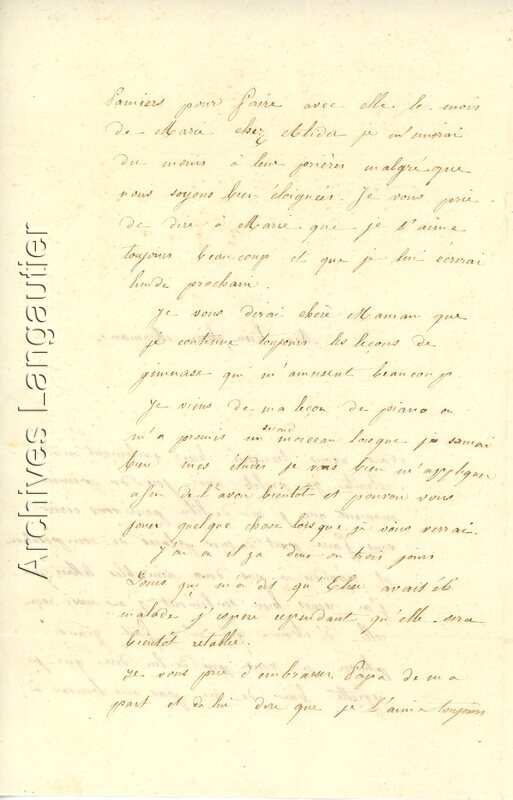 Pamiers pour faire avec elle le mois
de Marie chez Alida je m'unirai
du moins à leur prières malgré que
nous soyons bien éloignées. Je vous prie
de dire à Marie que je l'aime
toujours beaucoup et que je lui écrirai
lundi prochain.
Je vous dirai chère Maman que
je continue toujours les leçons de
gimnase qui m'amusent beaucoup.
Je viens de ma leçon de piano on
m'a promis un second morceau lorsque je saurai
bien mes études je vais bien m'appliquer
afin de l'avoir bientôt et pouvoir vous
jouer quelque chose lorsque je vous verrai.
J'ai vu il y a deux ou trois jours
qui m'a dit qu'Elise avait été
malade j'espere cependant qu'elle sera
bientôt rétablie.
Je vous prie d'embrasser Papa de ma
part et de lui dire que je l'aime toujours
Archives Langautier